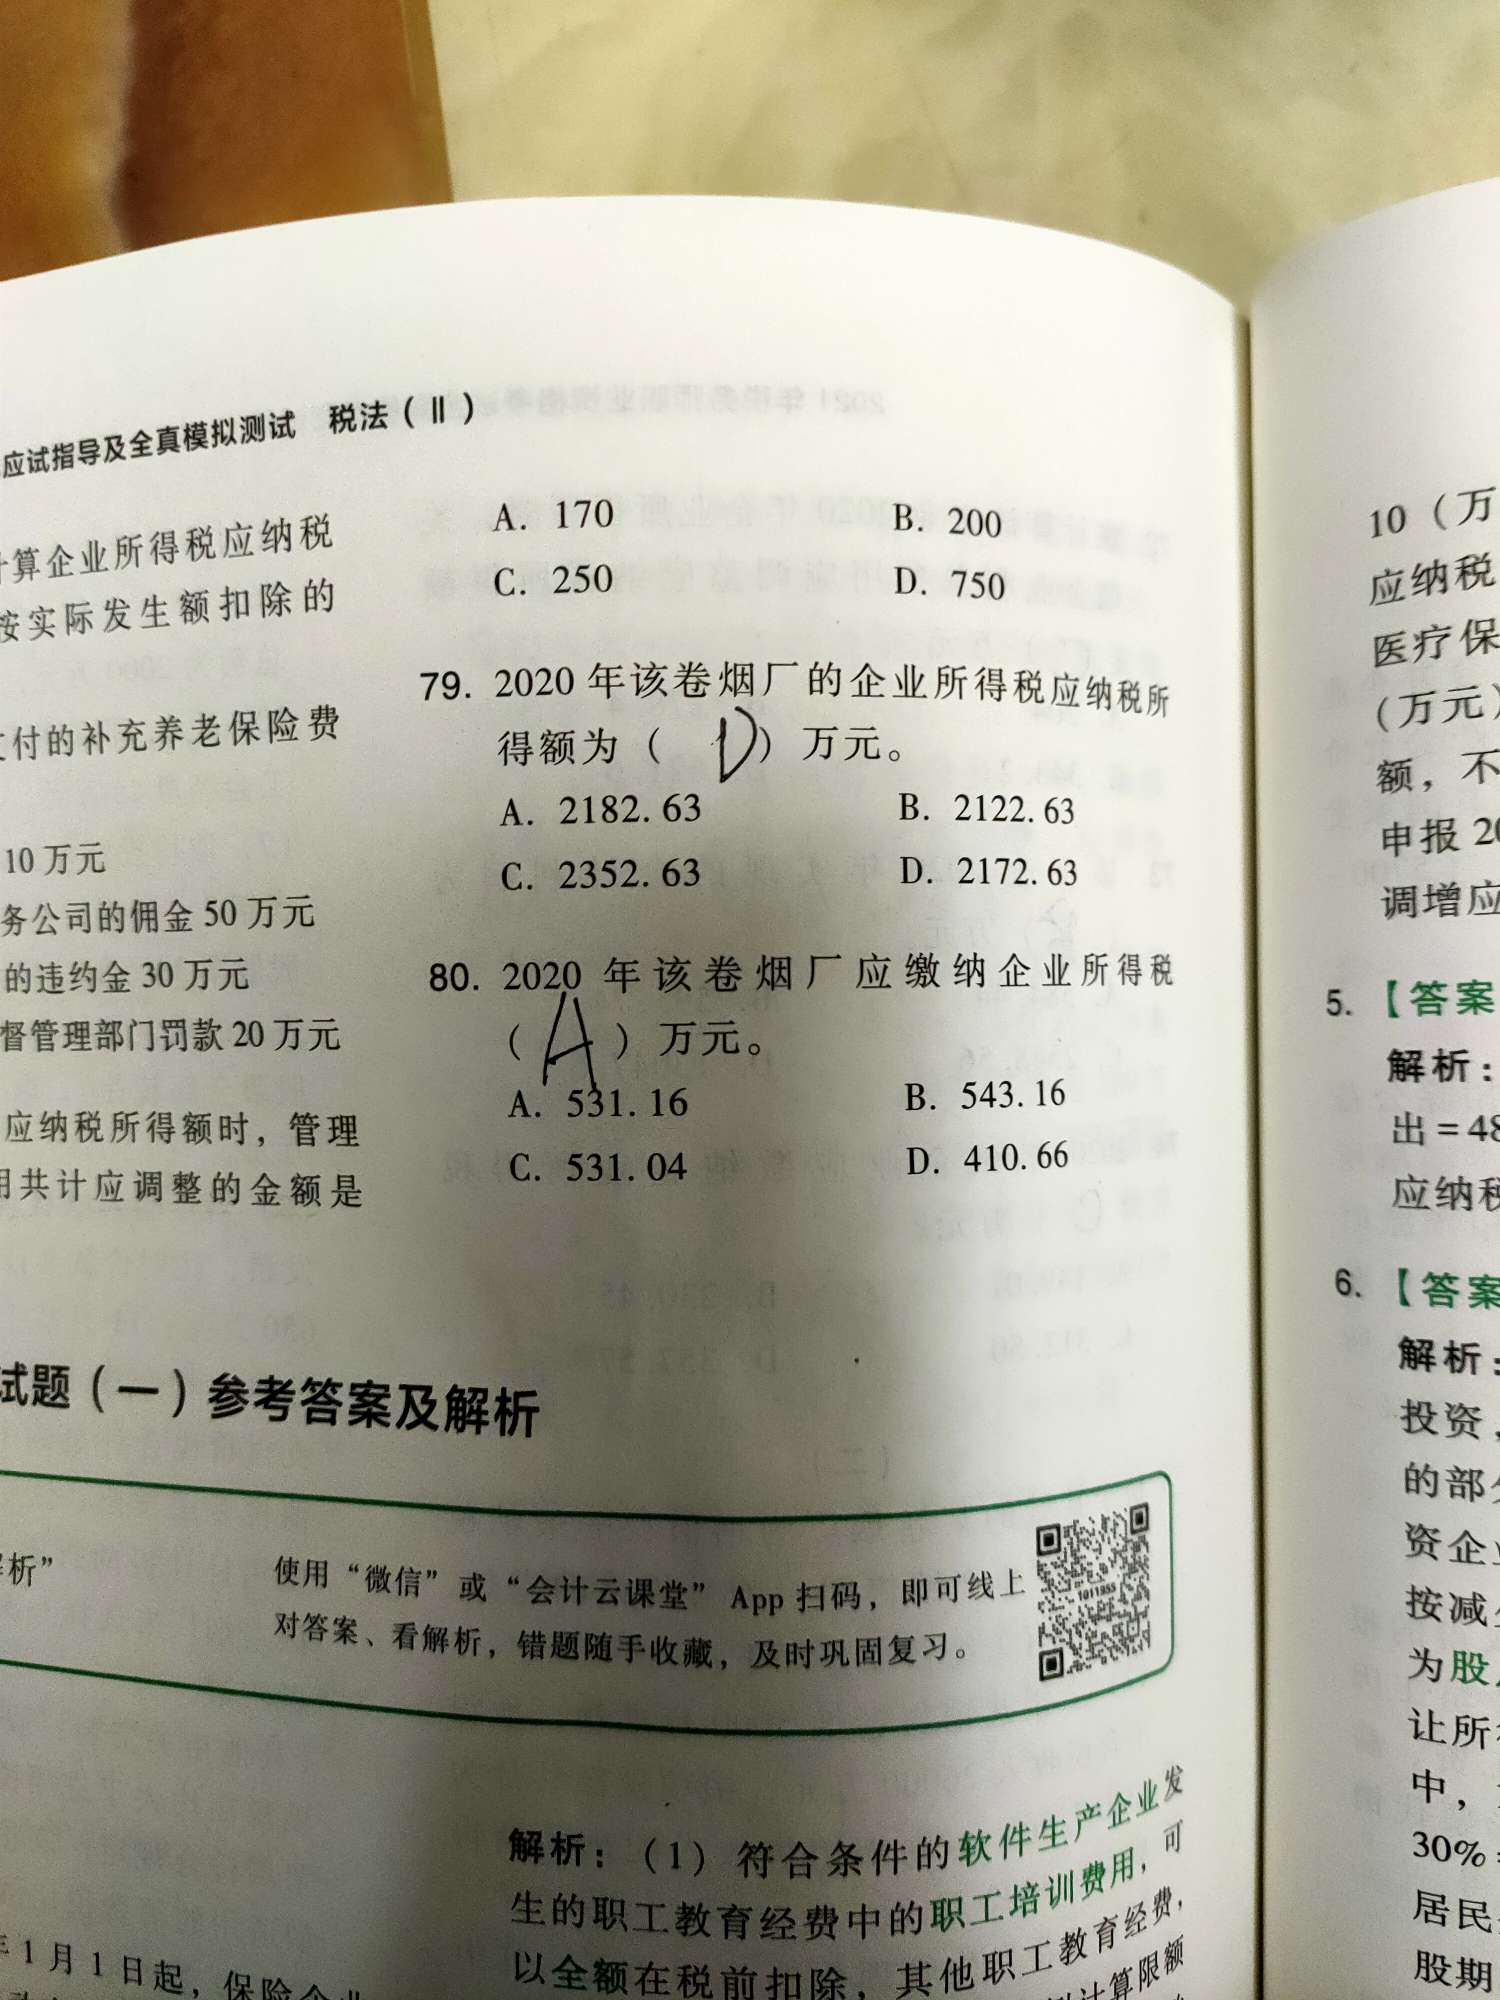 应试指导及全真模拟测试 税法(Ⅱ)
计算企业所得税应纳税
按实际发生额扣除的
支付的补充养老保险费
10万元
务公司的佣金50万元
的违约金30万元
督管理部门罚款20万元
应纳税所得额时，管理
用共计应调整的金额是
A. 170 B. 200
C. 250 D. 750
79. 2020年该卷烟厂的企业所得税应纳税所
得额为( D )万元。
A. 2182.63 B. 2122.63
C. 2352.63 D. 2172.63
80. 2020年该卷烟厂应缴纳企业所得税
( A )万元。
A. 531.16 B. 543.16
C. 531.04 D. 410.66
试题(一)参考答案及解析
解析”
使用“微信”或“会计云课堂”App扫码，即可线上
对答案、看解析，错题随手收藏，及时巩固复习。
1011955
年1月1日起，保险企业
解析：(1)符合条件的软件生产企业发
生的职工教育经费中的职工培训费用，可
以全额在税前扣除，其他职工教育经费，
计算限额
10(万
应纳税
医疗保
(万元)
额，不
申报20
调增应
5.【答案
解析：
出=48
应纳税
6.【答案
解析：
投资，
的部分
资企业
按减
为股
让所
中，
30%
居民
股期